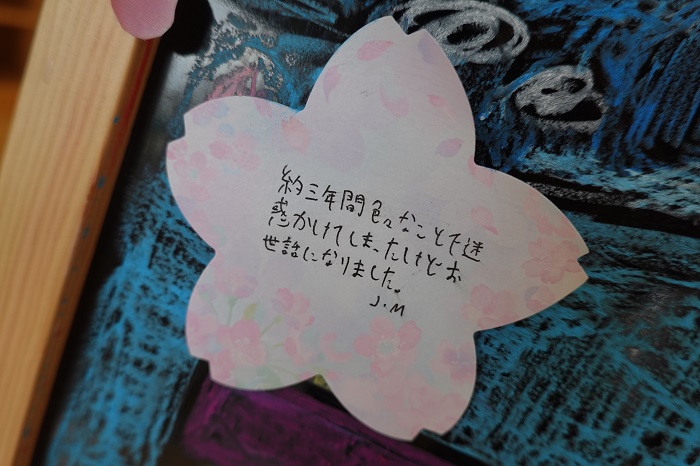 約三年間色々なことで迷
惑かけてしまったけどお
世話になりました。
J.M